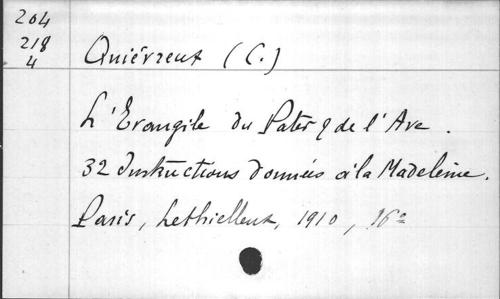 204
218
4
Quiévreux (C.)
L'Evangile du Pater & de l'Ave.
32 Instructions données à la Madeleine.
Paris, Lethielleux, 1910, 16º